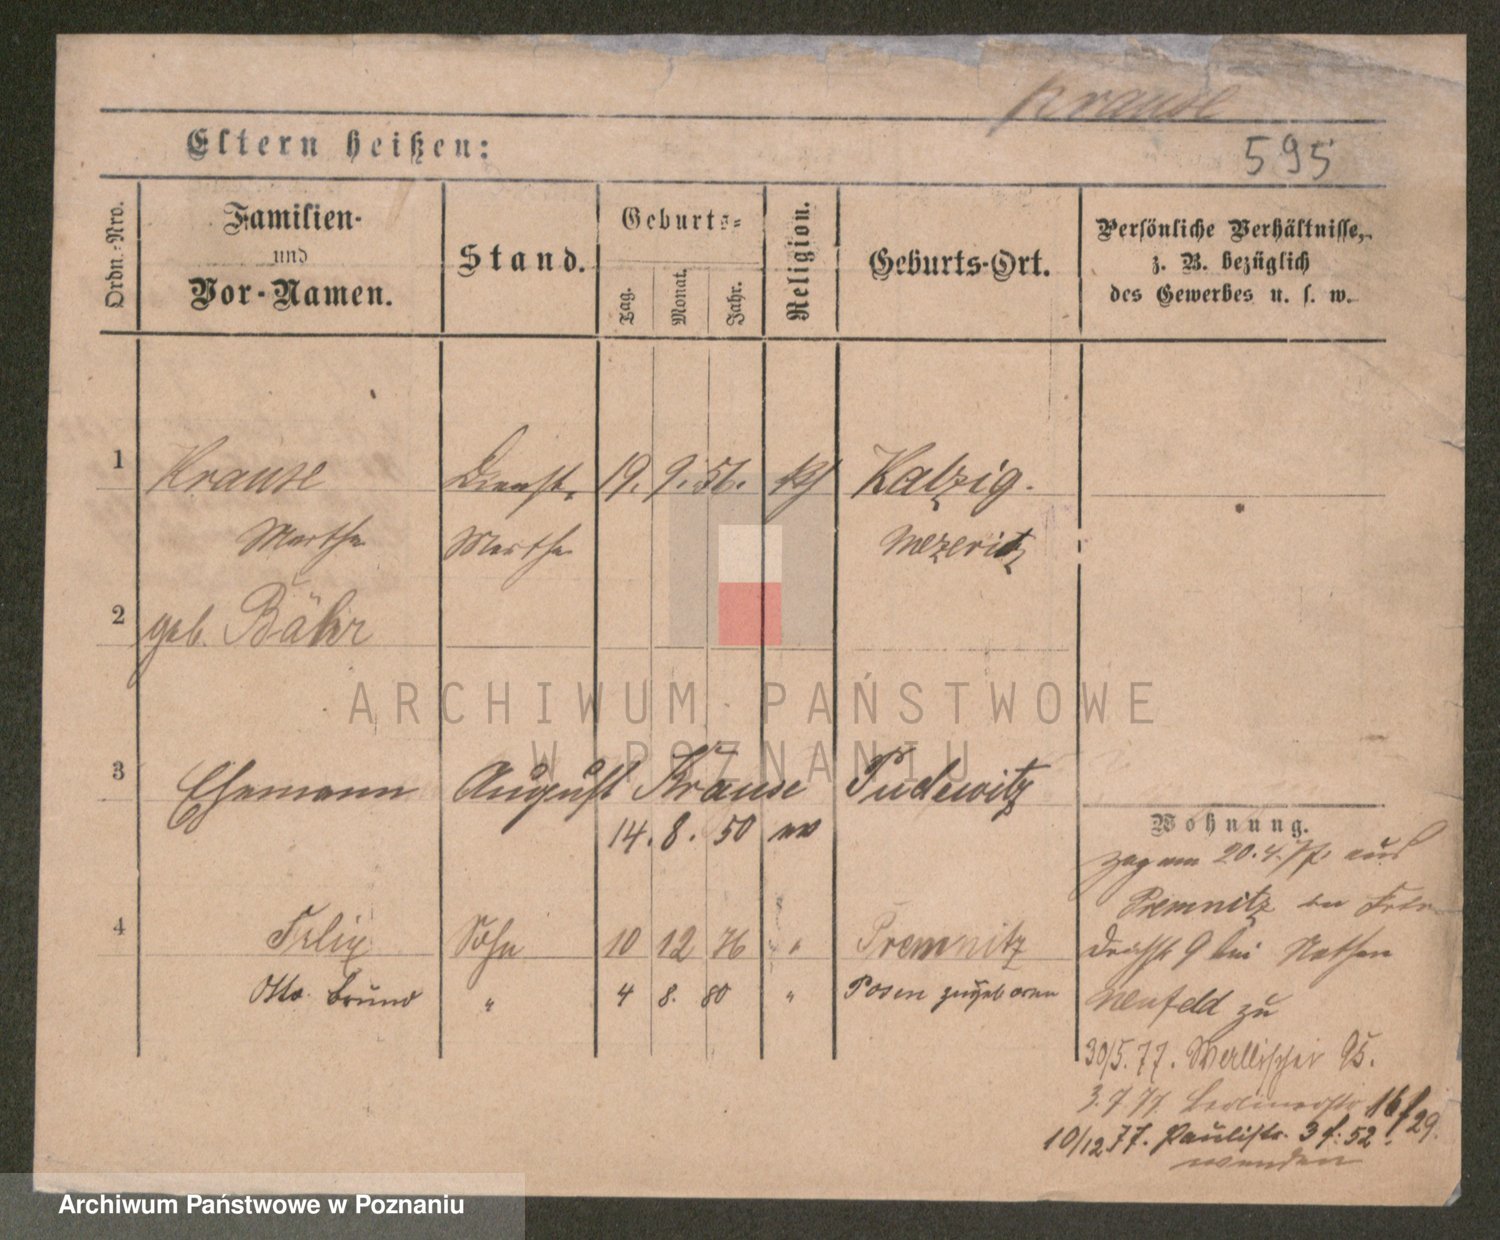 Krause
595
Eltern heißen:
Ordn.-Nro.
Familien-
und
Vor-Namen.
Stand.
Geburts-
Tag.
Monat.
Jahr.
Religion.
Geburts-Ort.
Persönliche Verhältnisse,
z. B. bezüglich
des Gewerbes u. s. w.
1 Krause Dienst- 19. 9. 56. Kalzig.
Marthe Marthe Mezeritz
2 geb. Bähr
3 Ehemann August Krause Pudewitz
14. 8. 50
Wohnung.
zog am 20.4.77. aus
Premnitz
4 Felix Sohn 10 12 76 " Premnitz
9 bei Nathan
Otto Bruno " 4 8. 80 " Posen zugeboren
Neufeld zu
30/5.77. Wallischei 95.
3.7.77. Berlinerstr 16 f 29.
10/12 77. Paulistr. 3 f: 52.
wenden
ARCHIWUM PAŃSTWOWE
W POZNANIU
Archiwum Państwowe w Poznaniu